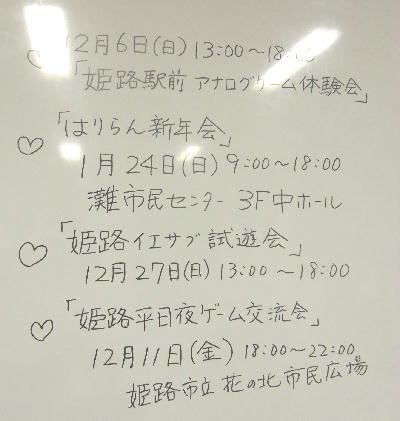 ♡ 12月6日(日) 13:00～18:00
「姫路駅前 アナログゲーム体験会」
♡ 「はりらん新年会」
1月24日(日) 9:00～18:00
灘市民センター 3F中ホール
♡ 「姫路イエサブ試遊会」
12月27日(日) 13:00～18:00
♡ 「姫路平日夜ゲーム交流会」
12月11日(金) 18:00～22:00
姫路市立 花の北市民広場